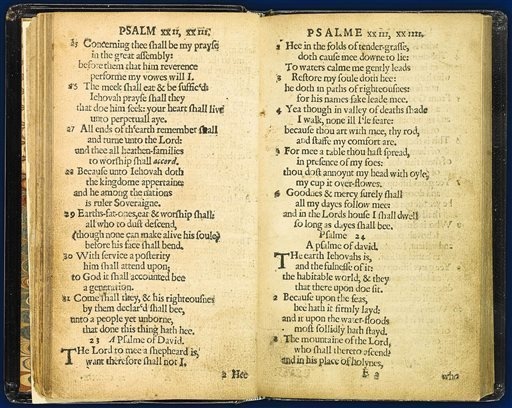 PSALM XXII, XXIII.
25 Concerning thee shall be my prayse
in the great assembly:
before them that him reverence
performe my vowes will I.
26 The meek shall eat & be suffic'd:
Iehovah prayse shall they
that doe him seek: your heart shall live
unto perpetuall aye.
27 All ends of th'earth remember shall
and turne unto the Lord:
and thee all heathen-families
to worship shall accord.
28 Because unto Iehovah doth
the kingdome appertaine:
and he among the nations
is ruler Soveraigne.
29 Earths-fat-ones, eat & worship shall:
all who to dust descend,
(though none can make alive his soule)
before his face shall bend,
30 With service a posterity
him shall attend upon;
to God it shall accounted bee
a generation.
31 Come shall they, & his righteousnes
by them declar'd shall bee,
unto a people yet unborne,
that done this thing hath hee.
23 A Psalme of David.
THe Lord to mee a shepheard is,
want therefore shall not I,
2 Hee
PSALME XXIII, XXIIII.
2 Hee in the folds of tender-grasse,
doth cause mee downe to lie:
To waters calme me gently leads
3 Restore my soule doth hee:
he doth in paths of righteousnes:
for his names sake leade mee.
4 Yea though in valley of deaths shade
I walk, none ill I'le feare:
because thou art with mee, thy rod,
and staffe my comfort are.
5 For mee a table thou hast spread,
in presence of my foes:
thou dost annoynt my head with oyle;
my cup it over-flowes.
6 Goodnes & mercy surely shall
all my dayes follow mee:
and in the Lords house I shall dwell
so long as dayes shall bee.
Psalme 24
A psalme of david.
THe earth Iehovahs is,
and the fulnesse of it:
the habitable world, & they
that there upon doe sit.
2 Because upon the seas,
hee hath it firmly layd:
and it upon the water-floods
most sollidly hath stayd.
3 The mountaine of the Lord,
who shall thereto ascend?
and in his place of holynes,
who